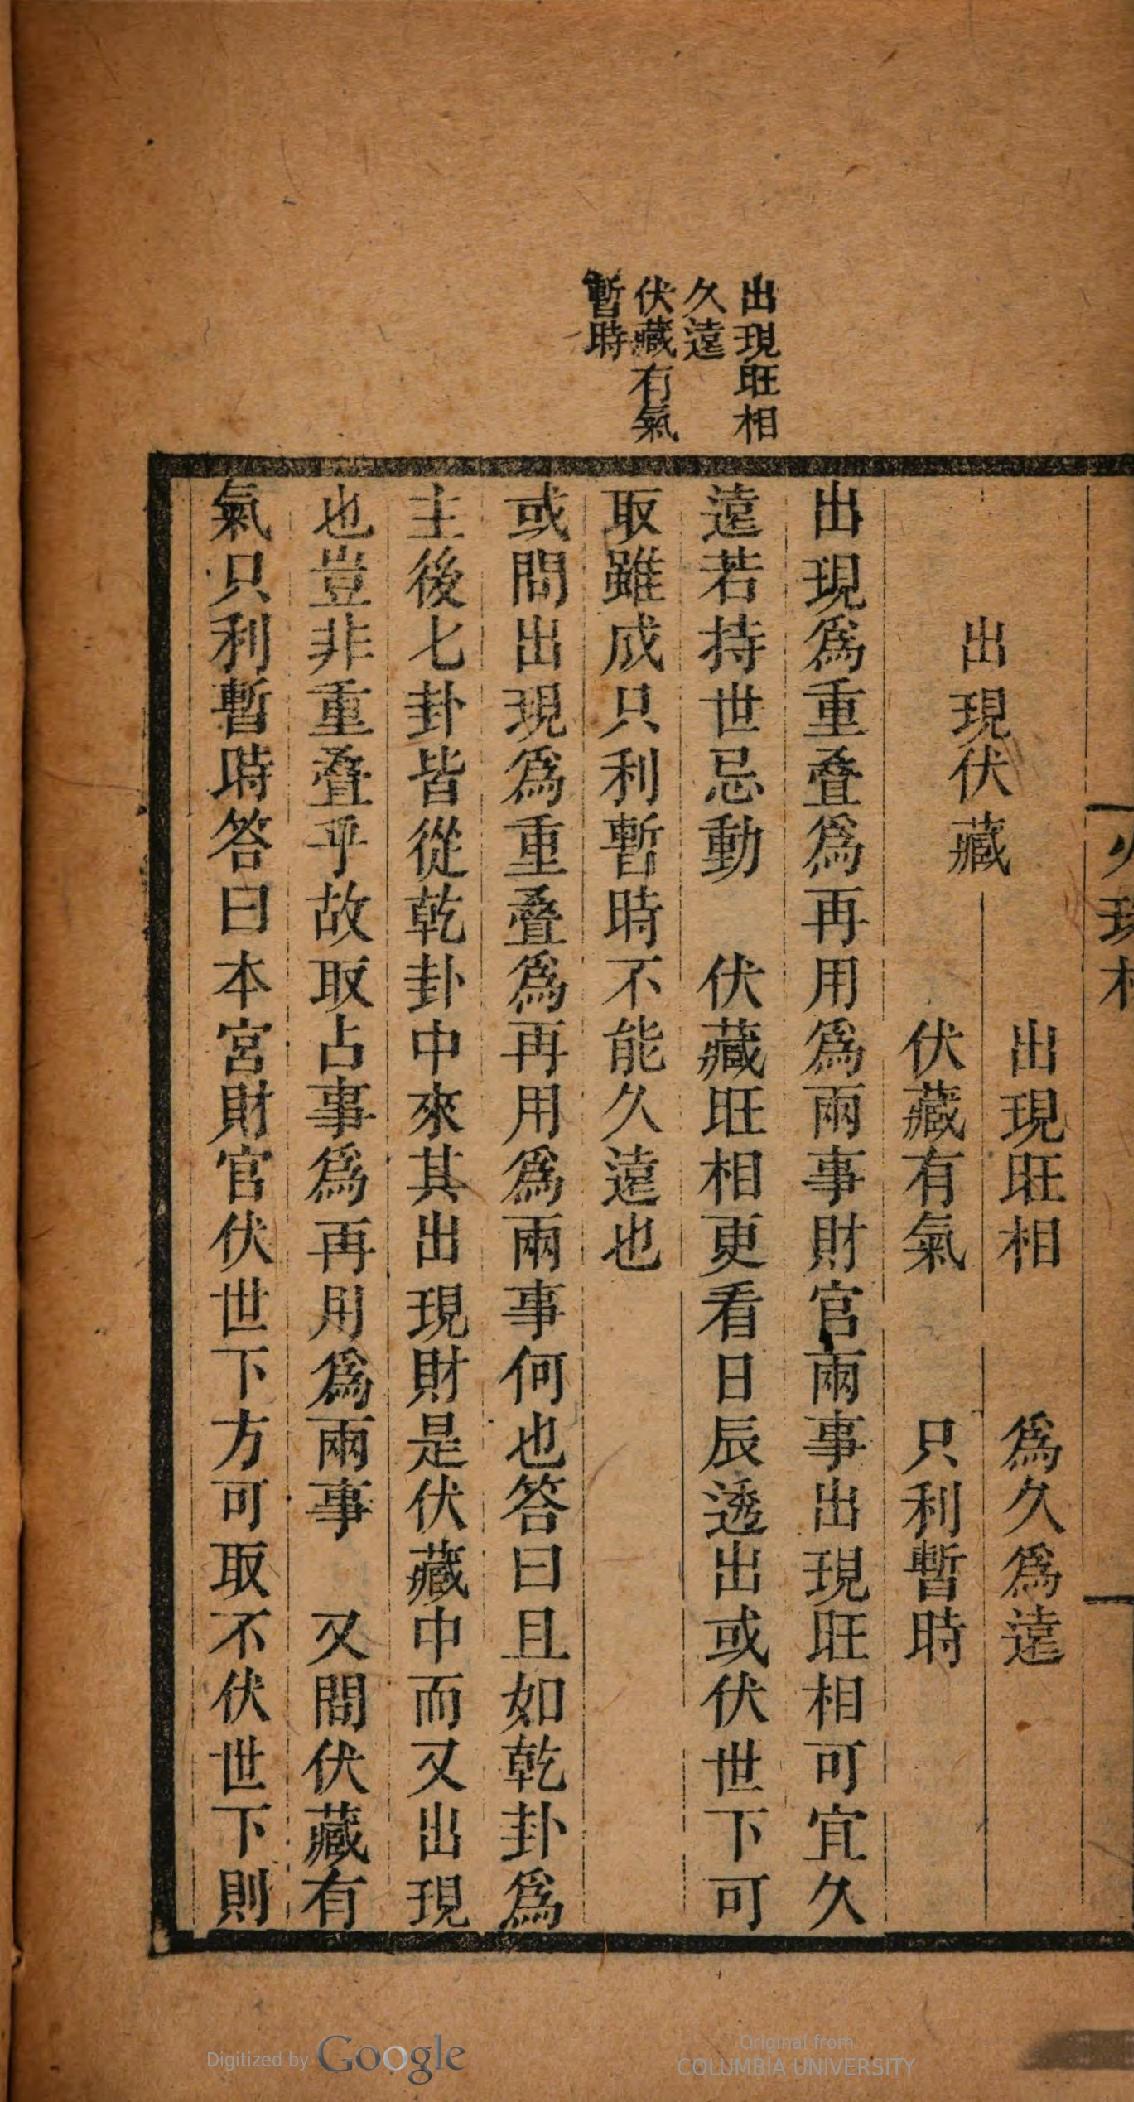 出現旺相
久遠
伏藏有氣
暫時
出現伏藏
出現旺相　為久為遠
伏藏有氣　只利暫時
出現為重叠為再用為兩事財官兩事出現旺相可宜久
遠若持世忌動　伏藏旺相更看日辰透出或伏世下可
取雖成只利暫時不能久遠也
或問出現為重叠為再用為兩事何也答曰且如乾卦為
主後七卦皆從乾卦中來其出現財是伏藏中而又出現
也豈非重叠乎故取占事為再用為兩事　又問伏藏有
氣只利暫時答曰本宮財官伏世下方可取不伏世下則
Digitized by Google
Original from
COLUMBIA UNIVERSITY